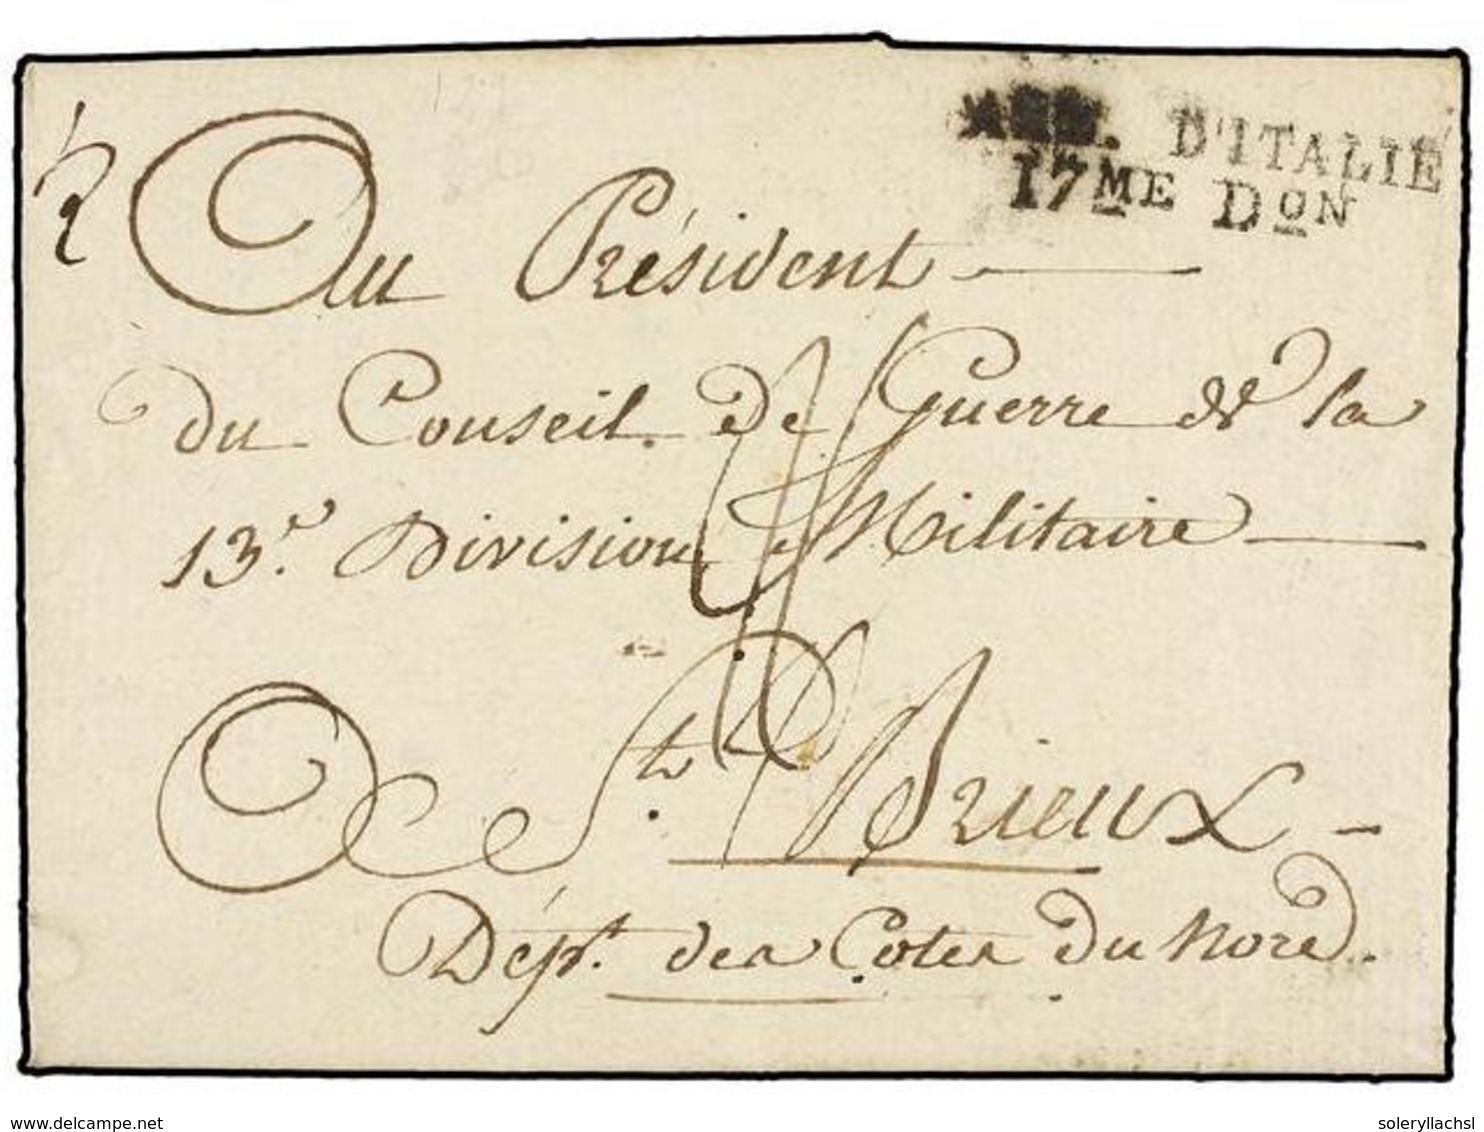 ARM. D'ITALIE
17ME DON
Au Président
du Conseil de Guerre de la
13e Division Militaire
St Brieux
Dépt. des Cotes du Nord.
delcampe.net
soleryllachsl